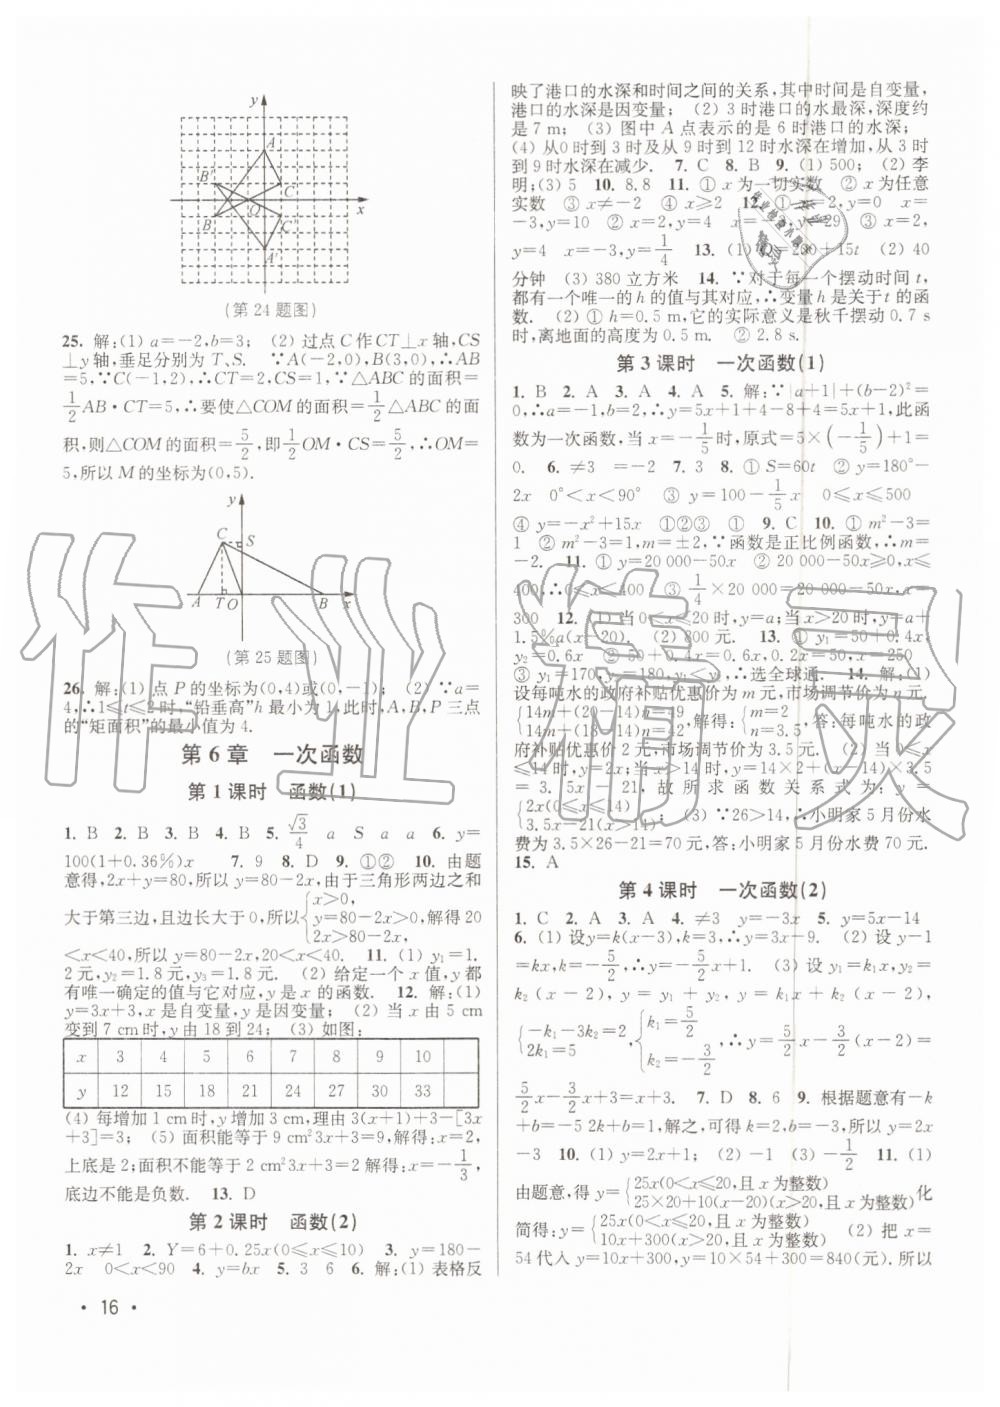 y
A
B′
C′
O
x
B
C
A′
(第24题图)
25. 解:(1) a=-2,b=3; (2) 过点C作CT⊥x轴,CS
⊥y轴,垂足分别为T、S. ∵A(-2,0),B(3,0),∴AB
=5,∵C(-1,2),∴CT=2,CS=1,∵△ABC的面积=
1/2 AB·CT=5,∴要使△COM的面积=1/2△ABC的面
积,则△COM的面积=5/2,即1/2 OM·CS=5/2,∴OM=
5,所以M的坐标为(0,5).
y
C
S
A T O B x
(第25题图)
26. 解:(1) 点P的坐标为(0,4)或(0,-1); (2) ∵a=
4,∴1≤t≤2时,“铅垂高”h最小为1,此时,A,B,P三点
的“矩面积”的最小值为4.
第6章 一次函数
第1课时 函数(1)
1. B 2. B 3. B 4. B 5. √3/4 a S a a 6. y=
100(1+0.36%)x 7. 9 8. D 9. ①② 10. 由题
意得,2x+y=80,所以y=80-2x,由于三角形两边之和
大于第三边,且边长大于0,所以{x>0, y=80-2x>0, 2x>80-2x, 解得20
<x<40,所以y=80-2x,20<x<40. 11. (1) y₁=1.
2元,y₂=1.8元,y₃=1.8元. (2) 给定一个x值,y都
有唯一确定的值与它对应,y是x的函数. 12. 解:(1)
y=3x+3,x是自变量,y是因变量; (2) 当x由5 cm
变到7 cm时,y由18到24; (3) 如图:
x 3 4 5 6 7 8 9 10
y 12 15 18 21 24 27 30 33
(4) 每增加1 cm时,y增加3 cm,理由3(x+1)+3-[3x
+3]=3; (5) 面积能等于9 cm²3x+3=9,解得:x=2,
上底是2;面积不能等于2 cm²3x+3=2解得:x=-1/3,
底边不能是负数. 13. D
第2课时 函数(2)
1. x≠1 2. Y=6+0.25x(0≤x≤10) 3. y=180-
2x 0<x<90 4. y=bx 5. 3 6 6. 解:(1) 表格反
· 16 ·
映了港口的水深和时间之间的关系,其中时间是自变量,
港口的水深是因变量; (2) 3时港口的水最深,深度约
是7 m; (3) 图中A点表示的是6时港口的水深;
(4) 从0时到3时及从9时到12时水深在增加,从3时
到9时水深在减少. 7. C 8. B 9. (1) 500; (2) 李
明;(3) 5 10. 8.8 11. ① x为一切实数 ② x为任意
实数 ③ x≠-2 ④ x≥2 12. ① x=2,y=0 x=
-3,y=10 ② x=2,y=4 x=-3,y=29 ③ x=2,
y=4 x=-3,y=1/4 13. (1) Q=200+15t (2) 40
分钟 (3) 380立方米 14. ∵对于每一个摆动时间t,
都有一个唯一的h的值与其对应,∴变量h是关于t的函
数. (2) ① h=0.5 m,它的实际意义是秋千摆动0.7 s
时,离地面的高度为0.5 m. ② 2.8 s.
第3课时 一次函数(1)
1. B 2. A 3. A 4. A 5. 解:∵|a+1|+(b-2)²=
0,∴a=-1,b=2,∴y=5x+1+4-8+4=5x+1,此函
数为一次函数,当x=-1/5时,原式=5×(-1/5)+1=
0. 6. ≠3 =-2 7. 3 8. ① S=60t ② y=180°-
2x 0°<x<90° ③ y=100-1/5 x 0≤x≤500
④ y=-x²+15x ①②③ ① 9. C 10. ① m²-3=
1 ② m²-3=1,m=±2,∵函数是正比例函数,∴m=
-2. 11. ① y=20 000-50x ② 20 000-50x≥0,x≤
400,∴0≤x≤400 ③ 1/4×20 000=20 000-50x,x=
300 12. (1) 当0<x≤20时,y=a;当x>20时,y=a+
1.5%a(x-20). (2) 800元. 13. ① y₁=50+0.4x,
y₂=0.6x ② 50+0.4x=0.6x,x=250
③ y₁=170,y₂=180,y₁<y₂,∴选全球通. 14. 解:(1)
设每吨水的政府补贴优惠价为m元,市场调节价为n元.
{14m+(20-14)n=49, 14m+(18-14)n=42, 解得:{m=2, n=3.5, 答:每吨水的政
府补贴优惠价2元,市场调节价为3.5元. (2) 当0≤x
≤14时,y=2x;当x>14时,y=14×2+(x-14)×3.5
=3.5x-21,故所求函数关系式为:y=
{2x(0≤x≤14) 3.5x-21(x>14); (3) ∵26>14,∴小明家5月份水
费为3.5×26-21=70元,答:小明家5月份水费70元.
15. A
第4课时 一次函数(2)
1. C 2. A 3. A 4. ≠3 y=-3x 5. y=5x-14
6. (1) 设y=k(x-3),k=3,∴y=3x-9. (2) 设y-1
=kx,k=-5/2,∴y=-5/2 x+1. (3) 设y₁=k₁x,y₂=
k₂(x-2), y=y₁+y₂, y=k₁x+k₂(x-2),
{-k₁-3k₂=2 2k₁=5, {k₁=5/2, k₂=-3/2, ∴y=5/2 x-3/2(x-2)=
5/2 x-3/2 x+3=x+3. 7. D 8. 6 9. 根据题意有-k
+b=-5 2k+b=1,解之,可得k=2,b=-3,所以y=2x
-3 10. (1) y=2x+1; (2) -1 (3) -1/2 11. (1)
由题意,得y={25x(0<x≤20,且x为整数) 25×20+10(x-20)(x>20,且x为整数)化
简得:y={25x(0<x≤20,且x为整数) 10x+300(x>20,且x为整数) (2) 把x=
54代入y=10x+300,y=10×54+300=840(元).所以
作业精灵